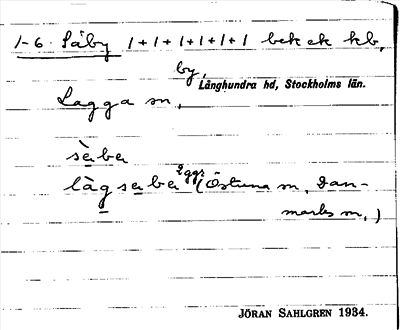 1-6. Såby 1+1+1+1+1+1 bek ek kb,
by,
Långhundra hd, Stockholms län.
Lagga sn,
sèḇer
2 ggr
låg seber (Östuna sn, Dan-
marks sn,)
JÖRAN SAHLGREN 1934.